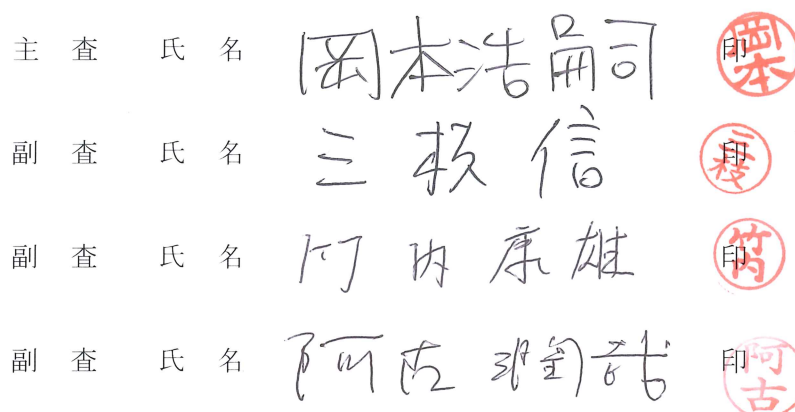 主 査 氏 名 岡本浩嗣 印 岡本
副 査 氏 名 三枝 信 印 三枝
副 査 氏 名 竹内 康雄 印 竹内
副 査 氏 名 阿古 潤哉 印 阿古